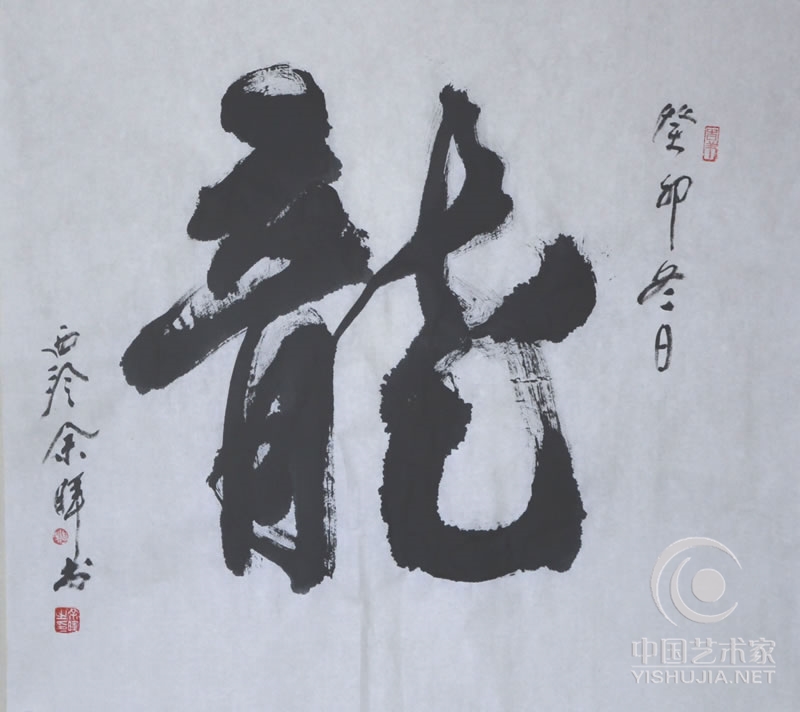 癸卯冬日
龍
西泠余晖书
中国艺术家
YISHUJIA.NET